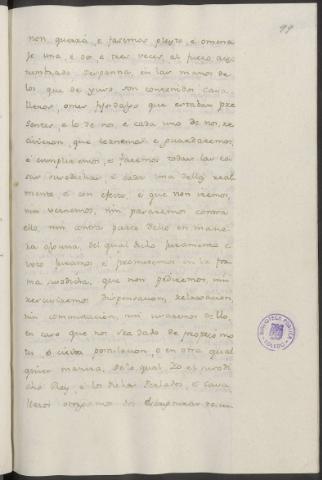 99
non querrá, e faremos pleyto, e omena
je una, e dos e tres veces, al fuero, acos
tumbrado Despanna, en las manos de
los que de yuso, son contenidos cava
lleros, omes fijosdalgo que estaban pre
sentes, e lo de nos, e cada uno de nos, re
civieron, que ternemos e guardaremos,
é cumpliremos, e faremos todas las co
sas susodichas, e cada una dellas real
mente, e con efeto, é que non iremos,
nin vernemos, nin pararemos contra
ello, nin contra parte dello en mane
ra alguna, del qual dicho juramento e
voto juramos e prometemos en la for
ma susodicha, que non pediremos, nin
dispensacion, relaxacion,
nin conmutacion, nin usaremos dello,
en caso que nos sea dado de propio mo
tu, o cierta postulacion, o en otra qual
quier manera, de lo qual Yo el susodi
cho Rey, e los dichos Perlados, e cava
lleros otorgamos dos
BIBLIOTECA PUBLICA
TOLEDO